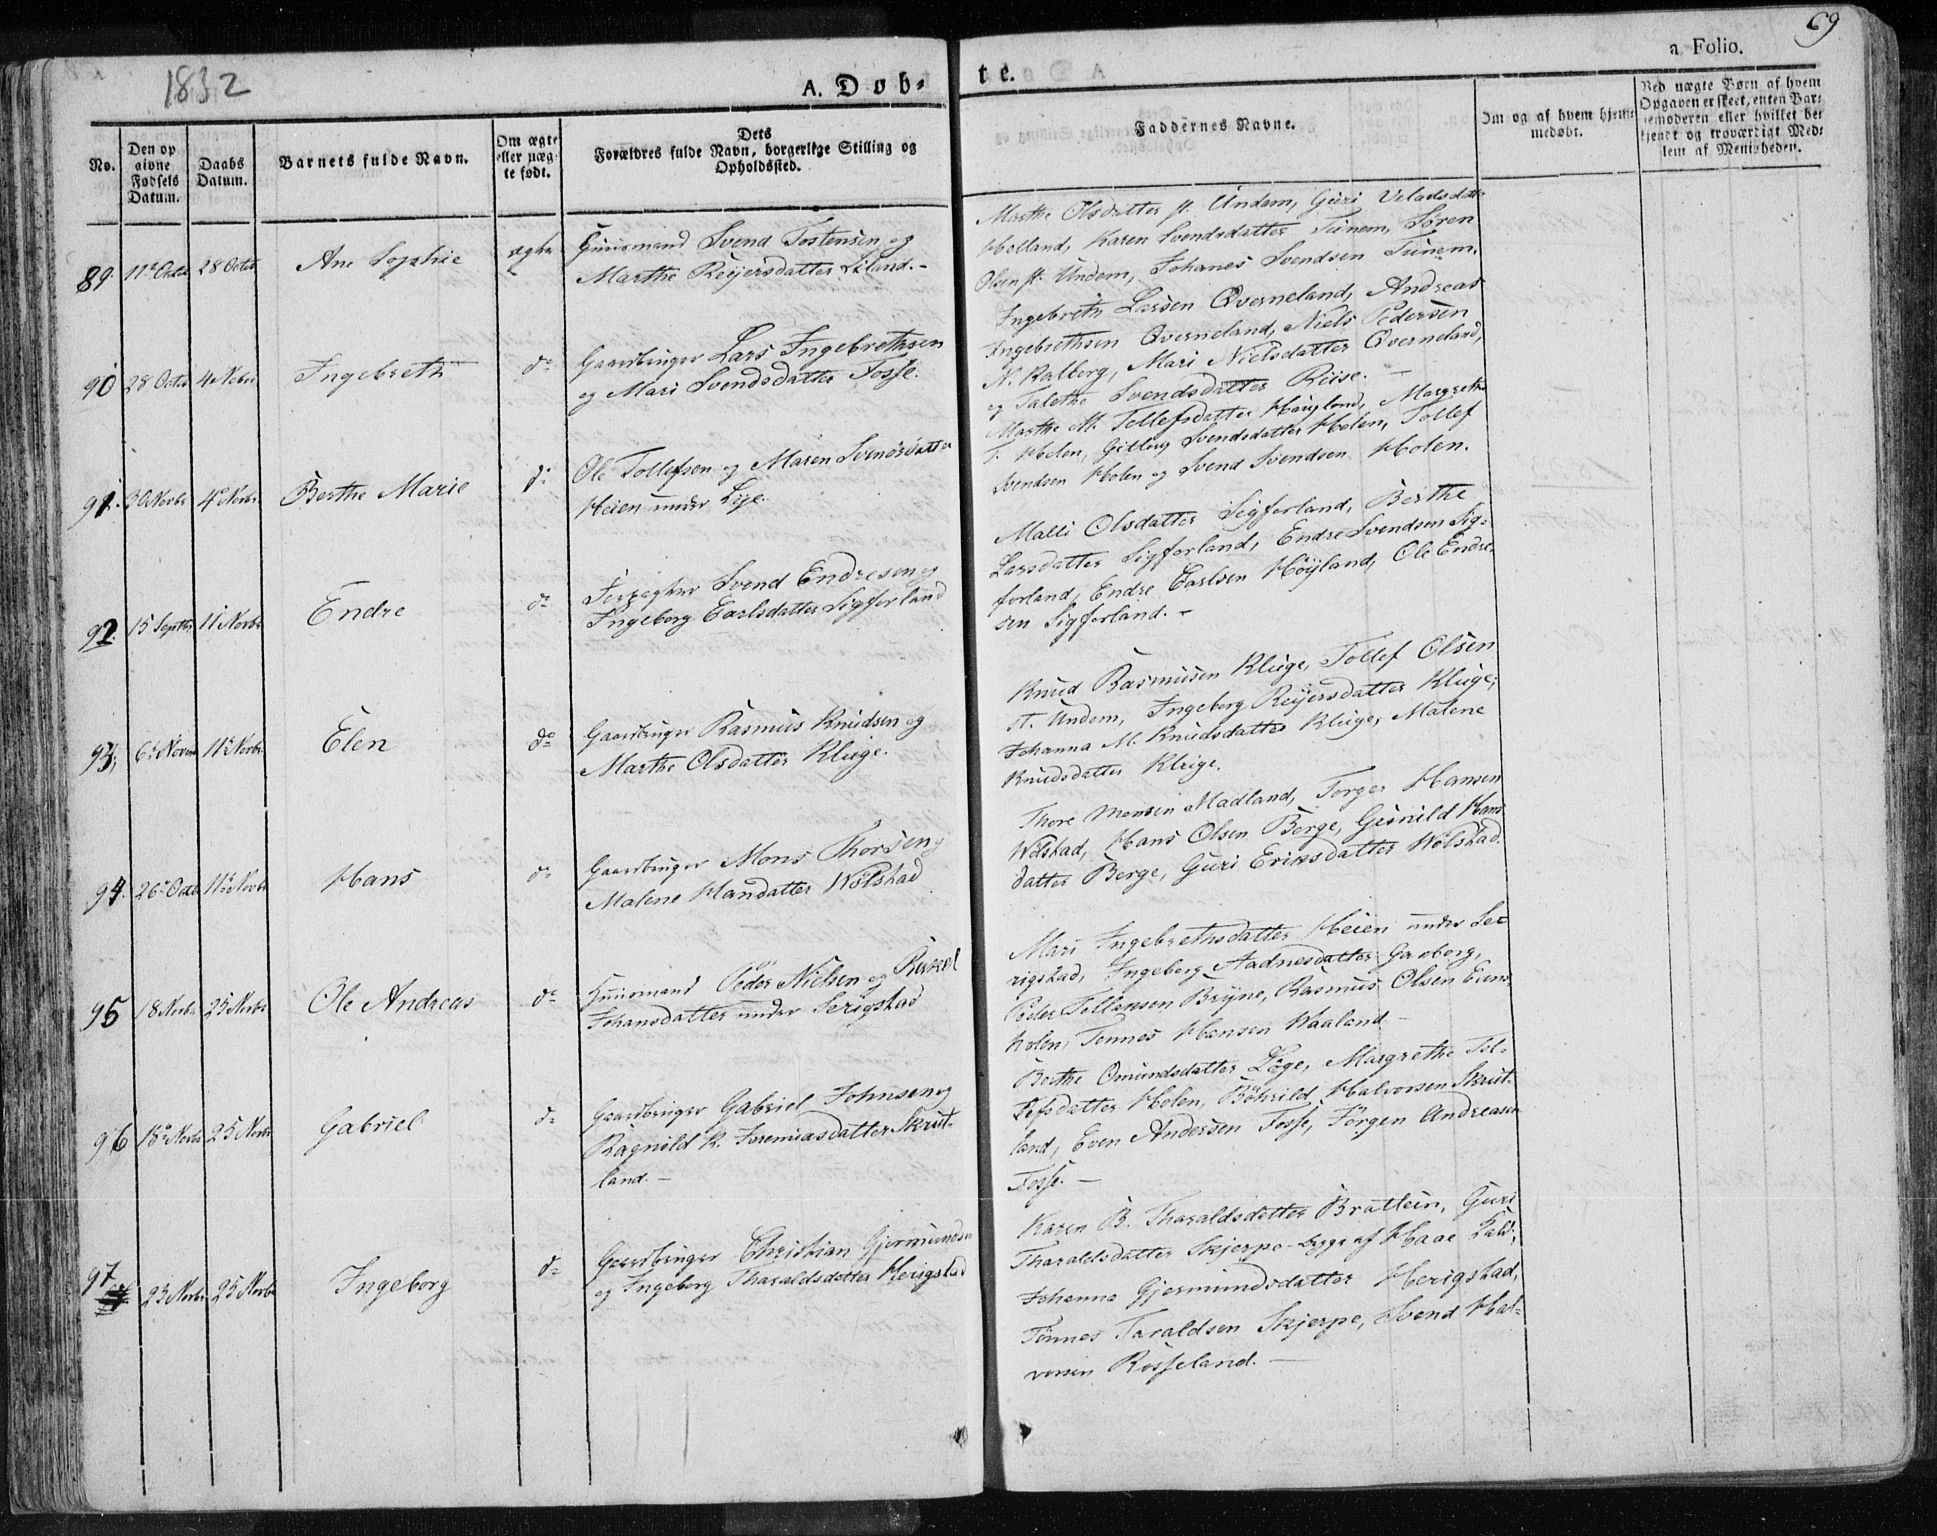 1832
A. Døb-
te.
a Folio.
69
No.
Den op
givne
Fødsels
Datum.
Daabs
Datum.
Barnets fulde Navn.
Om ægte
eller uæg-
te født.
Dets
Forældres fulde Navn, borgerlige Stilling og
Opholdssted.
Faddernes Navne.
Om og af hvem hjem-
medøbt.
Ved uægte Børn af hvem
Opgaven er skeet, enten Bar-
nemoderen eller hvilket be-
kjendt og troværdigt Med-
lem af Menigheden.
89 11te Octbr 28 Octbr Ane Sophie ægte Huusmand Svend Tostensen og
Marthe Reijersdatter Liland.-
Marthe Olsdatter st. Undem, Guri Velandsdatter
Helland, Karen Svendsdatter Tunem, Sören
Olsen st. Undem, Johanes Svendsen Tunem.
90 28 Octbr 4 Nobr Ingebreth do Gaardbruger Lars Ingebrethsen
og Mari Svendsdatter Fosse.
Ingebreth Larsen Qverneland, Andreas
Ingebrethsen Qverneland, Niels Pedersen
N. Kalberg, Mari Nielsdatter Qverneland,
og Talethe Svendsdatter Riise. -
91. 30 Novbr 4de Novbr Berthe Marie do Ole Tollefsen og Maren Svendsdatter
Heien under Lye.
Marthe M. Tollefsdatter Haugland, Margrethe
T. Holen, Gitlaug Svendsdatter Holen, Tollef
Svendsen Holen og Svend Svendsen Holen.
92. 15 Septbr 11 Novbr Endre do Svend Endresen og
Ingeborg Carlsdatter Sigforland
Malli Olsdatter Sigforland, Berthe
Larsdatter Sigforland, Endre Svendsen Sig-
forland, Endre Carlsen Höyland, Ole Endre-
sen Sigforland. -
93, 6te Novbr 11te Novbr Elen do Gaardbruger Rasmus Knudsen og
Marthe Olsdatter Kluge.
Knud Rasmusen Kluge, Tollef Olsen
st. Undem, Ingeborg Reijersdatter Kluge,
Johanna M. Knudsdatter Kluge, Malene
Knudsdatter Kluge.
94. 26de Octbr 11te Novbr Hans do Gaardbruger Mons Thorsen og
Malene Hansdatter Wölstad
Thore Monsen Madland, Torger Hansen
Wölstad, Hans Olsen Berge, Gunild Hans
datter Berge, Guri Eriksdatter Wölstad.
95 18 Novbr 25 Novbr Ole Andreas do Huusmand Peder Nielsen og Rakel
Johansdatter under Serigstad
Mari Ingebrethsdatter Heien under Se-
rigstad, Ingeborg Aadnesdatter Garborg,
Peder Tollaksen Bryne, Rasmus Olsen Euns
holen, Tonnes Hansen Waaland -
96 18de Novbr 25 Novbr Gabriel do Gaardbruger Gabriel Johnsen og
Ragnild K. Jeremiasdatter Skrut-
land. -
Berthe Omundsdatter Löge, Margrethe Tol-
lefsdatter Holen, Böhrild Halvorsen Skrut-
land, Even Andersen Fosse, Jörgen Andreasen
Fosse. -
97. 23 Novbr 25 Novbr Ingeborg do Gaardbruger Christian Gjermundsen
og Ingeborg Tharaldsdatter Herigstad
Karen B. Tharaldsdatter Brattein, Guri
Tharaldsdatter Skjerpe
Johanna Gjermundsdatter Herigstad,
Tönnes Taraldsen Skjerpe, Svend Hal-
vorsen Rosseland. -